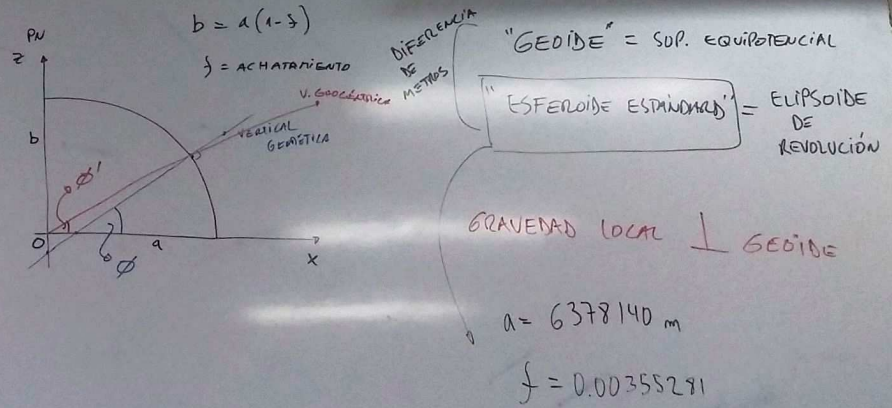 b = a(1-f)
f = ACHATAMIENTO
PN
Z
b
O
a
X
Ø'
Ø
V. GEOCÉNTRICA
VERTICAL
GEODÉTICA
DIFERENCIA
DE
METROS
"GEOIDE" = SUP. EQUIPOTENCIAL
"ESFEROIDE ESTÁNDARD" = ELIPSOIDE
DE
REVOLUCIÓN
GRAVEDAD LOCAL ⊥ GEOIDE
a = 6378140 m
f = 0.00355281